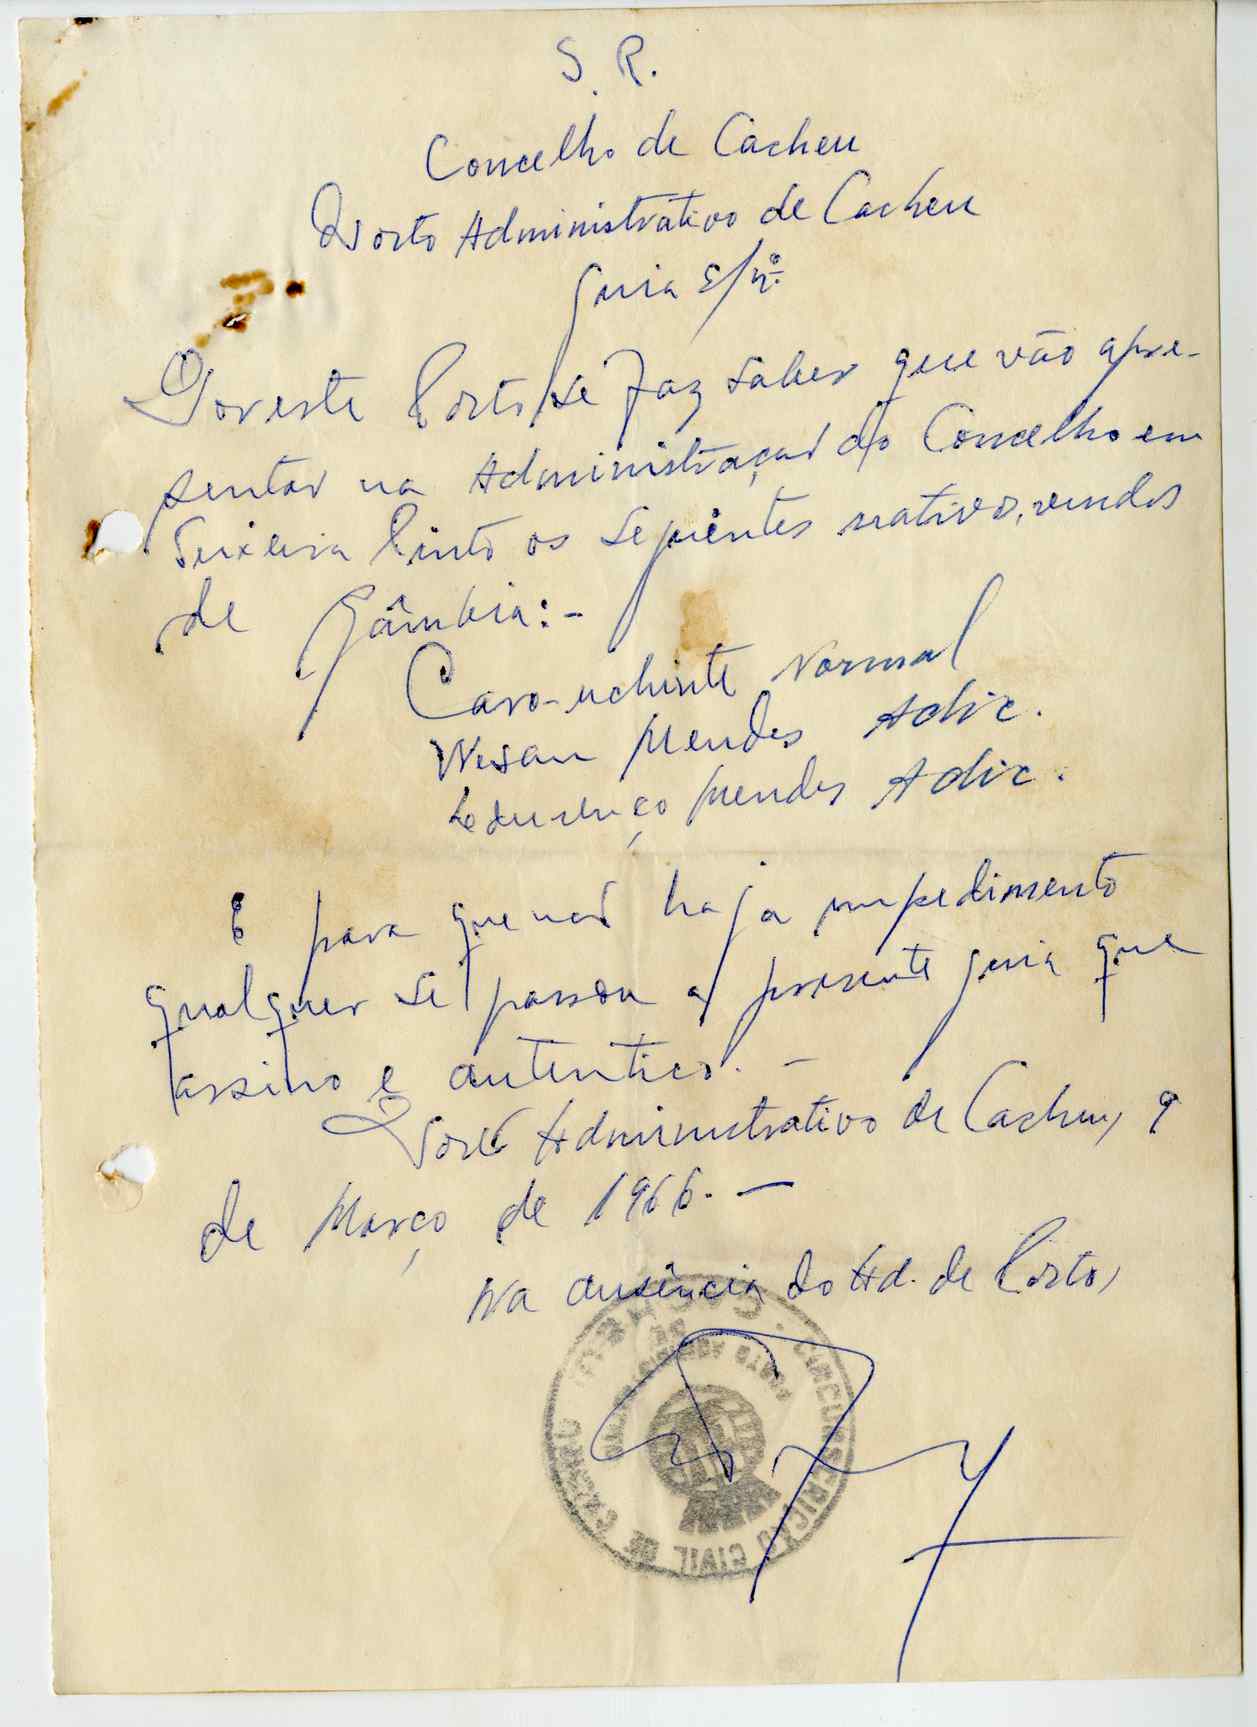 S. R.
Concelho de Cacheu
Posto Administrativo de Cacheu
Guia S/nº
Por este Posto se faz saber que vão apre-
sentar na Administração do Concelho em
Teixeira Pinto os seguintes nativos, vindos
de Gâmbia: -
Caro- Normal
Wesan Mendes Adic.
Mendes Adic.
E para que não haja impedimento
qualquer se passou a presente guia que
assino e autentico. -
Posto Administrativo de Cacheu, 9
de Março de 1966. -
Na ausência do Ad. de Posto,
CIRCUNSCRIÇÃO CIVIL DE CACHEU
POSTO